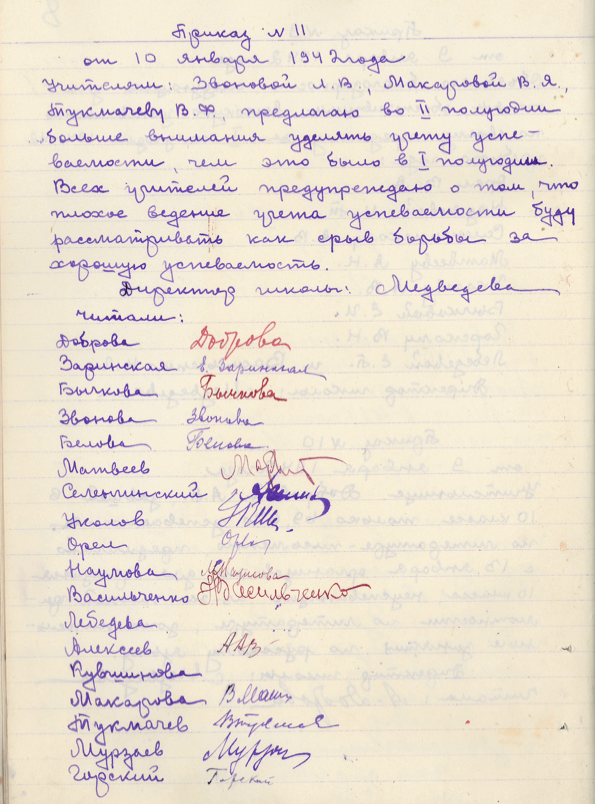 Приказ № 11
от 10 января 1942 года
Учителям: Звоновой Л. В., Макаровой В. Я.,
Тукмачеву В. Ф. предлагаю во II полугодии
больше внимания уделять учету успе-
ваемости, чем это было в I полугодии.
Всех учителей предупреждаю о том, что
плохое ведение учета успеваемости буду
рассматривать как срыв борьбы за
хорошую успеваемость.
Директор школы: Медведева
Читали:
Доброва Доброва
Заринская Заринская
Бычкова Бычкова
Звонова Звонова
Белова Белова
Матвеев
Селенгинский
Уколов
Орел Орел
Наумова Наумова
Васильченко Васильченко
Лебедева
Алексеев ААВ
Кувшинова
Макарова
Тукмачев
Мурзаев
Горский Горский